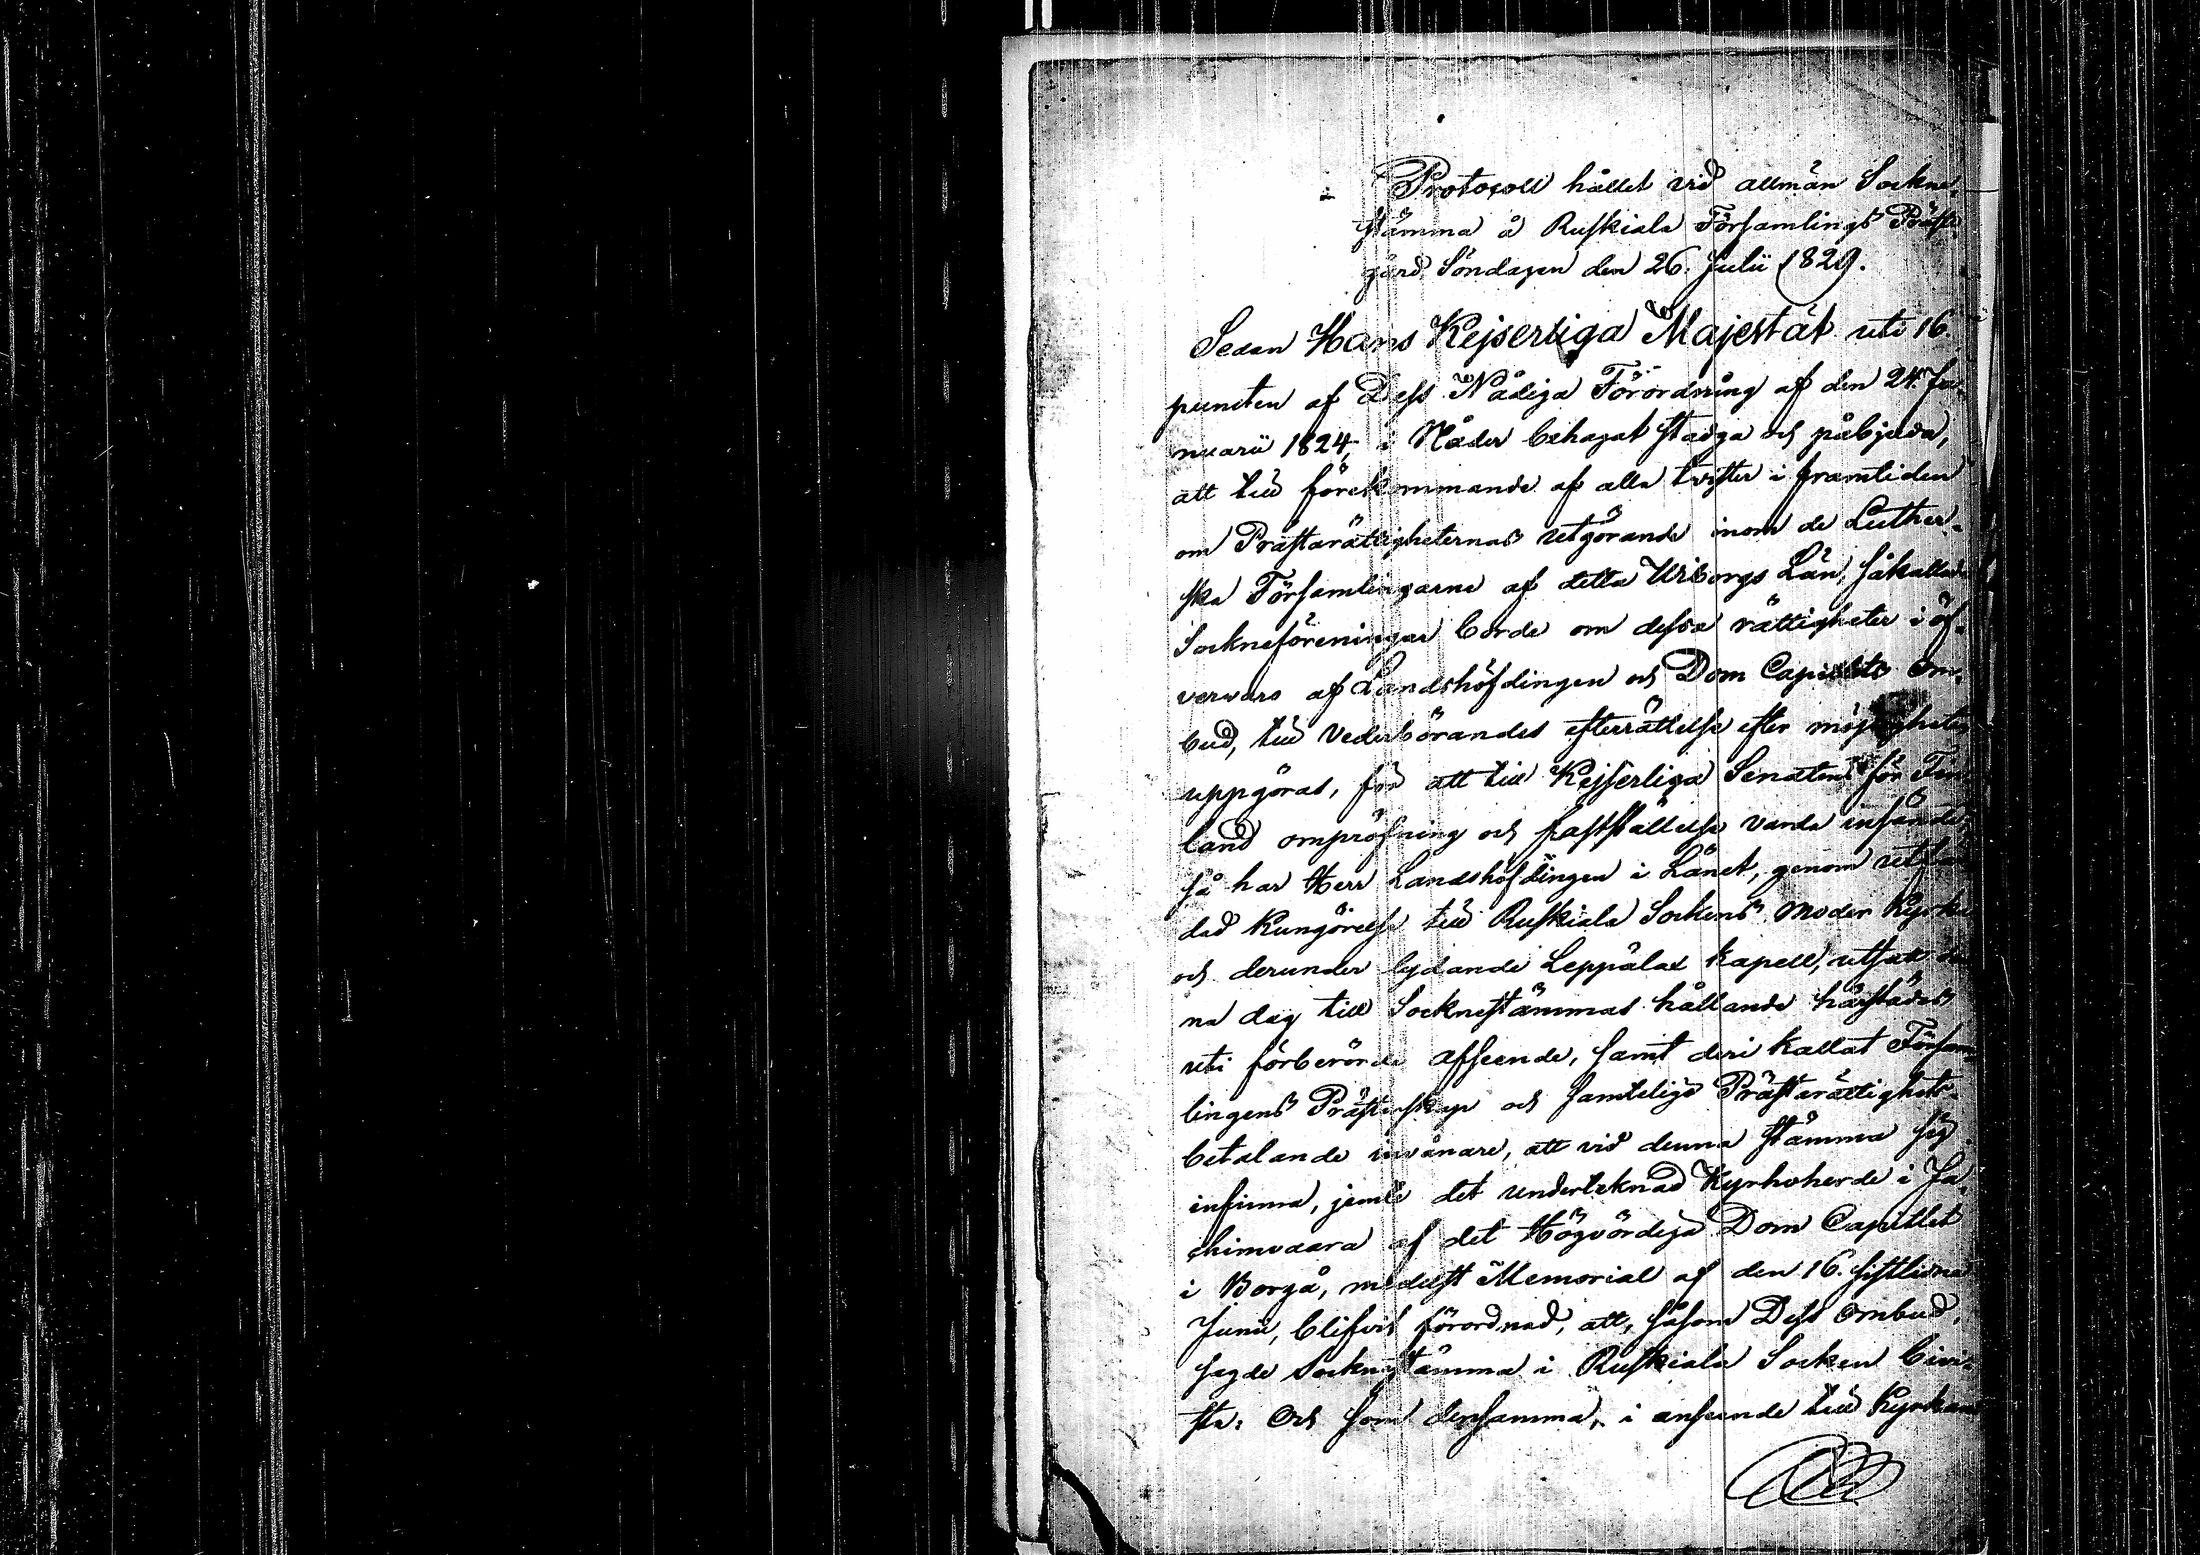 Protocoll hållet vid allmän Sockne-
stämma å Ruskiala Församlings Präst-
gård Söndagen den 26. Julii 1829.
Sedan Hans Kejserliga Majestät uti 16.
puncten af Dess Nådiga Förordning af den 24. Ja-
nuarii 1824, i Nåder behagat stadga och påbjuda,
att till förekommande af alla tvister i framtiden
om Prästarättigheternas utgörande inom de Luther-
ska Församlingarne af detta Wiborgs Län, såkallade
Sockneföreningar borde om dessa rättigheter i öf-
verwaro af Landshöfdingen och Dom Capitlets Om-
bud, till Vederbörandes efterrättelse efter möjligheten
uppgöras, för att till Kejserliga Senaten för Fin-
land ompröfning och fastställelse varda insände;
så har Herr Landshöfdingen i Länet, genom utfär-
dad Kungörelse till Ruskiala Sockens Moder Kyrka
och derunder lydande Leppälax Kapell, utsatt den-
na dag till Socknestämmas hållande härstädes
uti förberörde afseende, samt deri kallat Försam-
lingens Prästerskap och samtelige Prästarättighets-
betalande invånare, att vid denna stämma sig
infinna, jemte det undertecknad Kyrkoherde i Ja-
chimvaara af det Högvördiga Dom Capitlet
i Borgå, medelst Memorial af den 16. sistlidne
Junii, blifvit förordnad, att, såsom Dess Ombud,
sagde Socknestämma i Ruskiala Socken bivi-
sta: Och som densamma, i anseende till Kyrkans